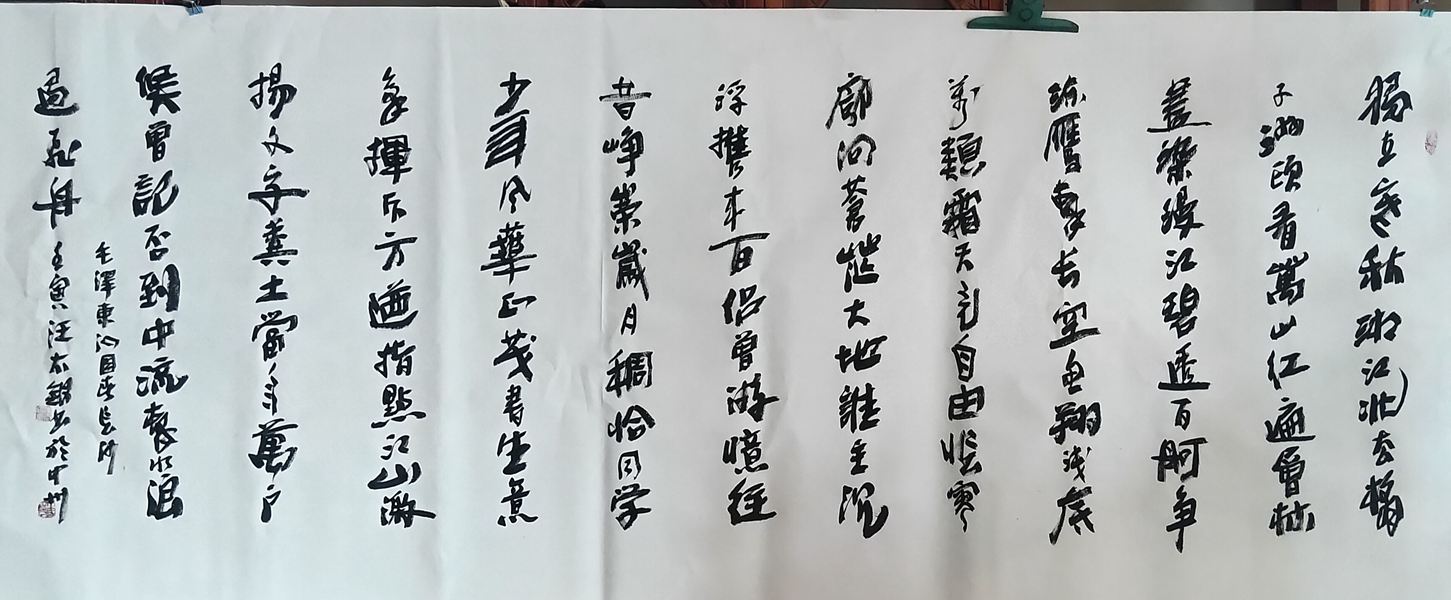 獨立寒秋湘江北去橘
子洲頭看萬山红遍層林
盡染漫江碧透百舸争
流鷹擊長空魚翔浅底
萬類霜天競自由悵寥
廓问蒼茫大地誰主沉
浮攜来百侣曾游憶往
昔峥嵘歲月稠恰同学
少年风華正茂書生意
氣揮斥方遒指點江山激
揚文字糞土當年萬户
侯曾記否到中流擊水浪
遏飛舟
毛澤東沁园春長沙
壬寅汪太書於中州